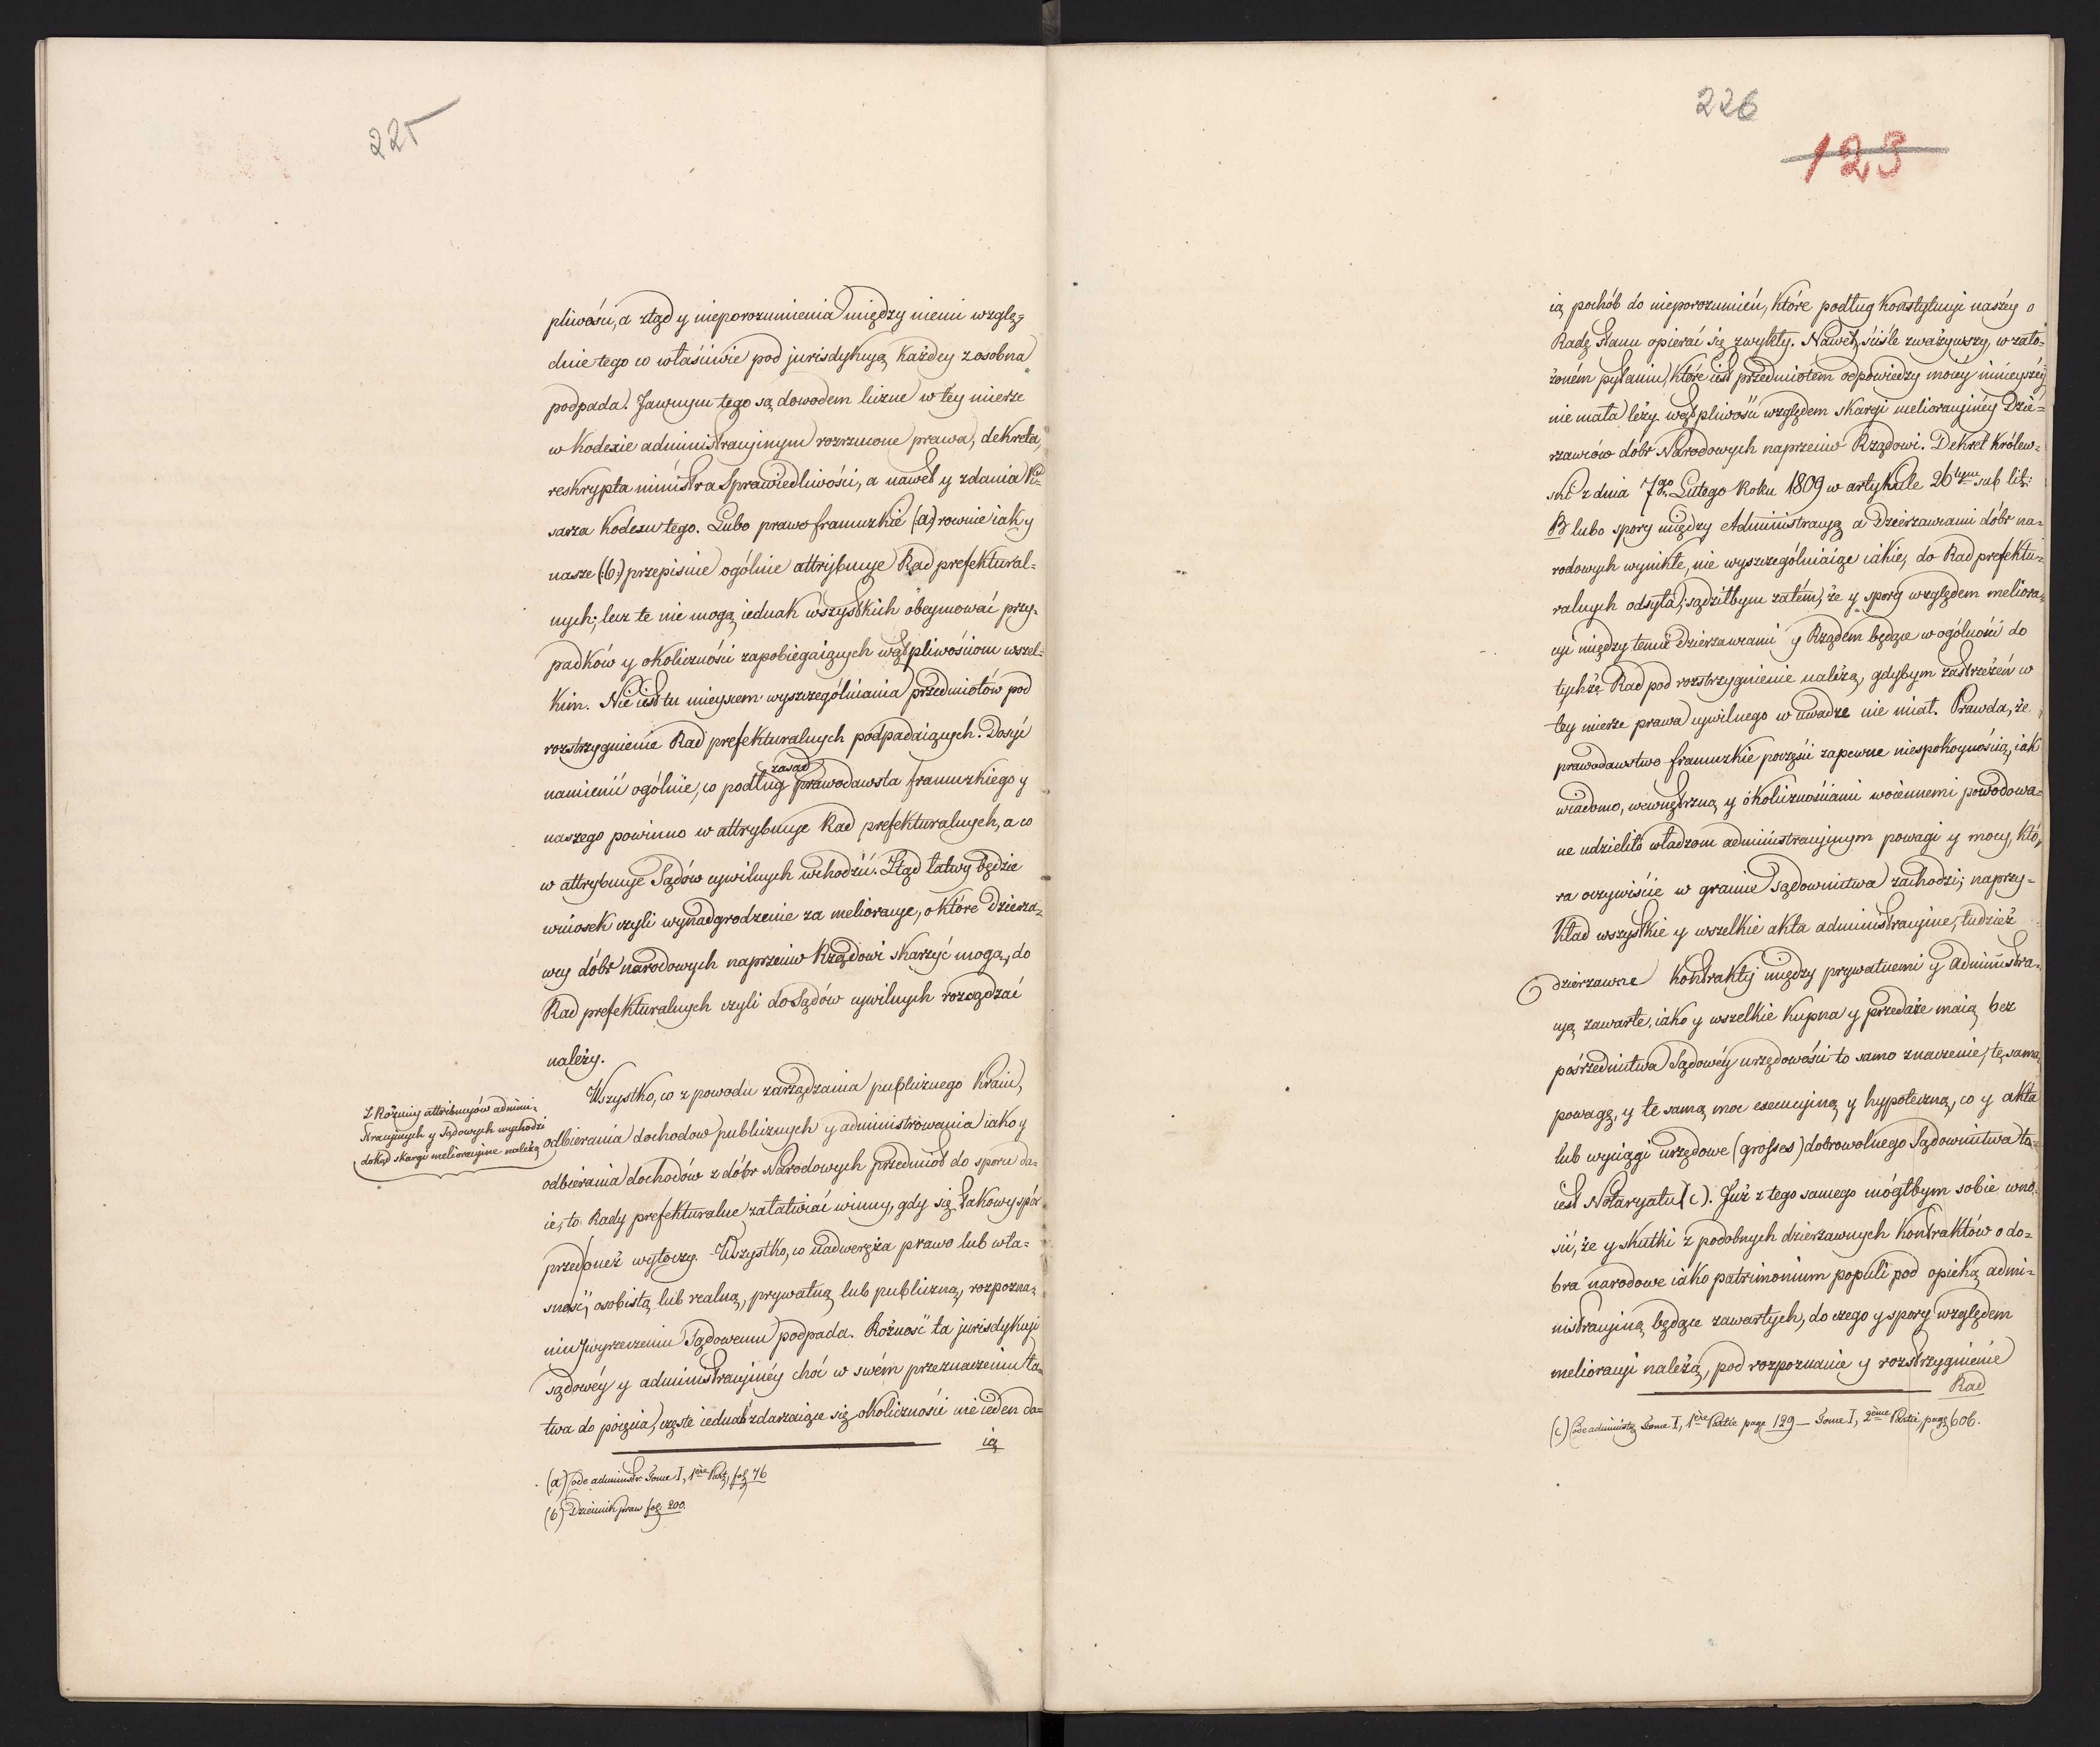 225
pliwości, a ztąd y nieporozumienia między niemi wzglę=
dnie tego co właściwie pod jurisdykcyą każdey z osobna
podpada. Jawnym tego są dowodem liczne w tey mierze
w Kodexie administracyjnym rozrzucone prawa, dekreta,
reskrypta ministra Sprawiedliwości, a nawet y zdania Pi=
sarza Kodexu tego. Lubo prawo francuzkie (a) rownie iak y
nasze (:b:) przepisuie ogólnie attrybucye Rad prefektural=
nych; lecz te nie mogą iednak wszystkich obeymować przy=
padków y okoliczności zapobiegaiących wątpliwościom wszel=
kim. Nie iest tu mieyscem wyszczególniania przedmiotów pod
rozstrzygnienie Rad prefekturalnych podpadaiących. Dosyć
namienić ogólnie, co podług zasad prawodawsta francuzkiego y
naszego powinno w attrybucye Rad prefekturalnych, a co
w attrybucye Sądów cywilnych wchodzić. Ztąd łatwy będzie
wniosek czyli wynadgrodzenie za melioracye, o które Dzierża=
wcy dóbr narodowych naprzeciw Rządowi skarżyć mogą, do
Rad prefekturalnych czyli do Sądów cywilnych rozsądzać
należy.
Z Różnicy attribucyów admini=
stracyinych y Sądowych wychodzi
dokąd skargi melioracyine należą
Wszystko, co z powodu zarządzania publicznego Kraiu,
odbierania dochodow publicznych y administrowania iako y
odbierania dochodów z dóbr Narodowych przedmiot do sporu da=
ie, to Rady prefekturalne załatwiać winny, gdy się takowy spór
przed oneż wytoczy. Wszystko, co nadweręża prawo lub wła=
sność, osobistą lub realną, prywatną lub publiczną, rozpozna=
niu y wyrzeczeniu Sądowemu podpada. Rożność ta jurisdykcyi
Sądowéy y administracyinéy choć w swém przeznaczeniu ła=
twa do poięcia, częste iednak zdarzaiące się okoliczności nie ieden da=
ią
(a) Code administr. Tome I, 1ère Part. fol. 76
(b) Dziennik praw fol. 200.
226
123
ią pochób do nieporozumień, które podług Konstytucyi naszéy o
Radę Stanu opierać się zwykły. Nawet, ściśle zważywszy, w zało=
żoném pytaniu, które iest przedmiotem odpowiedzy moiéy ninieyszéy
nie mała leży wątpliwość względem skargi melioracyinéy Dzie=
rzawców dóbr Narodowych naprzeciw Rządowi. Dekret Królew=
ski z dnia 7go Lutego Roku 1809 w artykule 26tym sub lit:
B lubo spory między Administracyą a Dzierzawcami dóbr na=
rodowych wynikłe, nie wyszczególniaiąc iakie, do Rad prefektu=
ralnych odsyła; sądziłbym zatém, że y spory względem meliora=
cyi między temiż Dzierzawcami y Rządem będące w ogólności do
tychże Rad pod rozstrzygnienie należą, gdybym zastrzeżeń w
tey mierze prawa cywilnego w uwadze nie miał. Prawda, że
prawodawstwo francuzkie poczęści zapewne niespokoynością, iak
wiadomo, wewnętrzną y okolicznościami woiennemi powodowa=
ne udzieliło władzom administracyinym powagi y mocy, któ=
ra oczywiście w granice Sądownictwa zachodzi; naprzy=
kład wszystkie y wszelkie akta administracyine, tudzież
dzierzawne Kontrakty między prywatnemi y Administra=
cyą zawarte, iako y wszelkie kupna y przedaże maią bez
pośrzednictwa Sądowéy urzędowości to samo znaczenie, tę samą
powagę, y tę samą moc exekucyiną y hypoteczną, co y akta
lub wyciągi urzędowe (grosses) dobrowolnego Sądownictwa to
iest Notaryatu (c). Już z tego samego mógłbym sobie wno=
sić, że y skutki z podobnych dzierzawnych Kontraktów o do=
bra narodowe iako patrimonium populi pod opieką admi=
nistracyiną będące zawartych, do czego y spory względem
melioracyi należą, pod rozpoznanie y rozstrzygnienie
Rad
(c) Code administr. Tome I, 1ère Partie page 129 — Tome I, 2ème Partie, page 606.